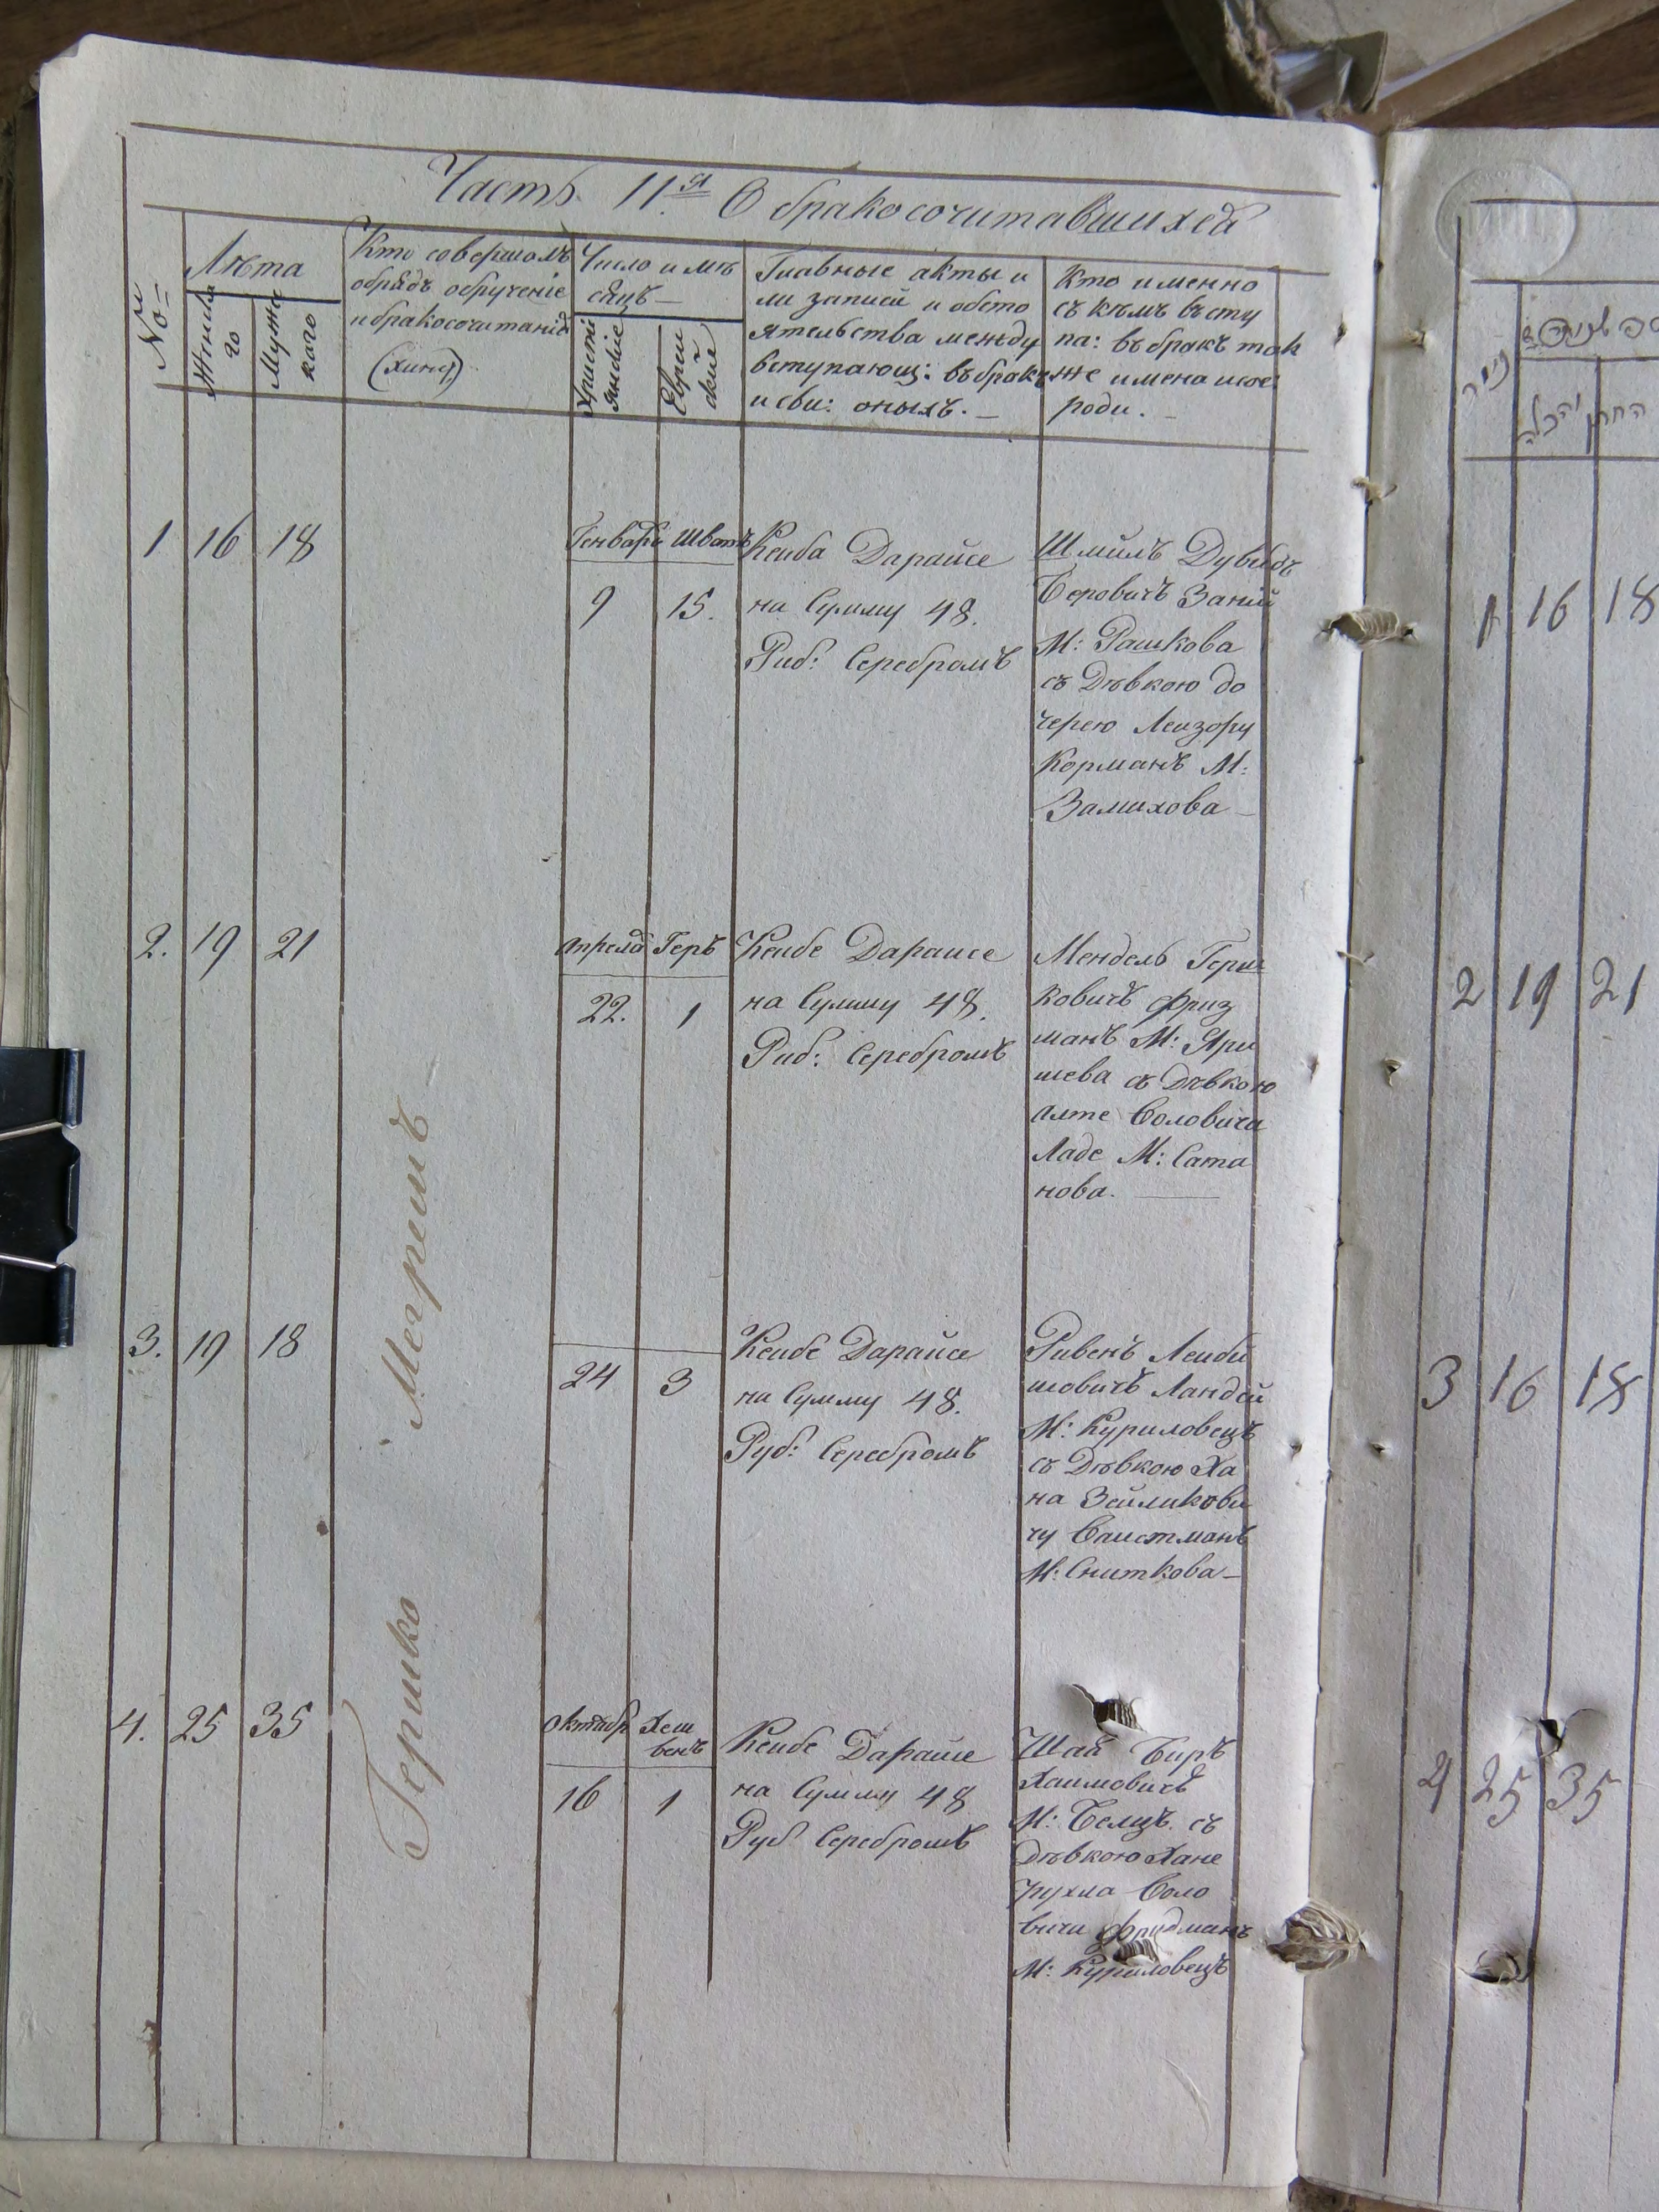 Часть 11.ая О бракосочитавшихся
№м
No=
Лѣта
Женска
го
Мужес
каго
Кто совершалъ
обрядъ обрученіе
и бракосочитанія
(хипя)
Число и мѣ
сяцъ —
Христі
янскіе
Еврей
скіе
Главные акты и
ли записи и обсто
ятельства между
вступающ: въ бракъ
и сви: оныхъ. —
Кто именно
съ кѣмъ всту
па: въ бракъ так
же имена и
роди. —
1
16
18
Генваря
Шватъ
9
15.
Ксиба Дарайсе
на Сумму 48.
Руб: Серебромъ
Шмиль Дувидъ
Беровичъ
М: Рашкова
съ Дѣвкою до
черею Лейзору
Корманъ М:
Замихова —
2.
19
21
Апреля
Геръ
22.
1
Ксибе Дараисе
на Сумму 48.
Руб: Серебромъ
Мендель Герш
ковичъ Фриз
манъ М: Яри
шева съ Дѣвкою
Алте Соловичи
Ладе М: Сата
нова.
3.
19
18
24
3
Ксибе Дарайсе
на Сумму 48.
Руб: Серебромъ
Ривенъ Лейби
шовичъ Ландей
М: Куриловецъ
съ Дѣвкою Ха
на Зейликови
чу Ваистманъ
М: Сниткова —
4.
25
35
Октябр
Хеш
венъ
16
1
Ксибе Дарайсе
на Сумму 48
Руб Серебромъ
Шая Биръ
Хаимовичъ
М: Белцъ. съ
Дѣвкою Хане
Рухла Соло
вичи Фридманъ
М: Куриловецъ
Гершко Мегришъ
החתן
והכלה
1 16 18
2 19 21
3 16 18
4 25 35